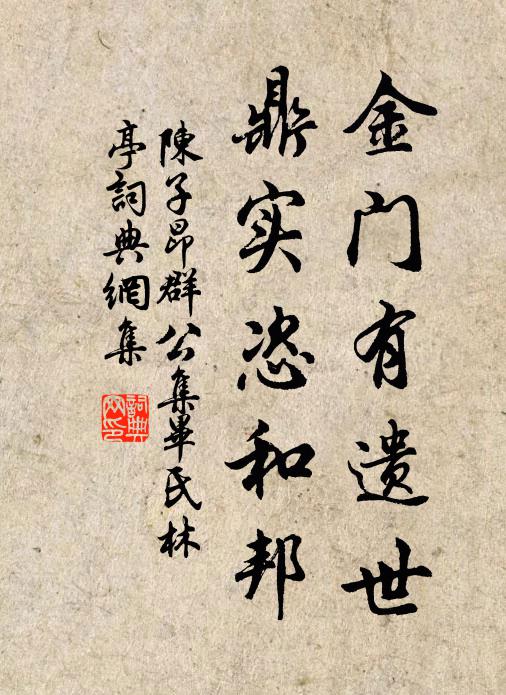 金门有遗世
鼎实恣和邦
陳子昂群公集畢氏林
亭詞典網集
詞典网印